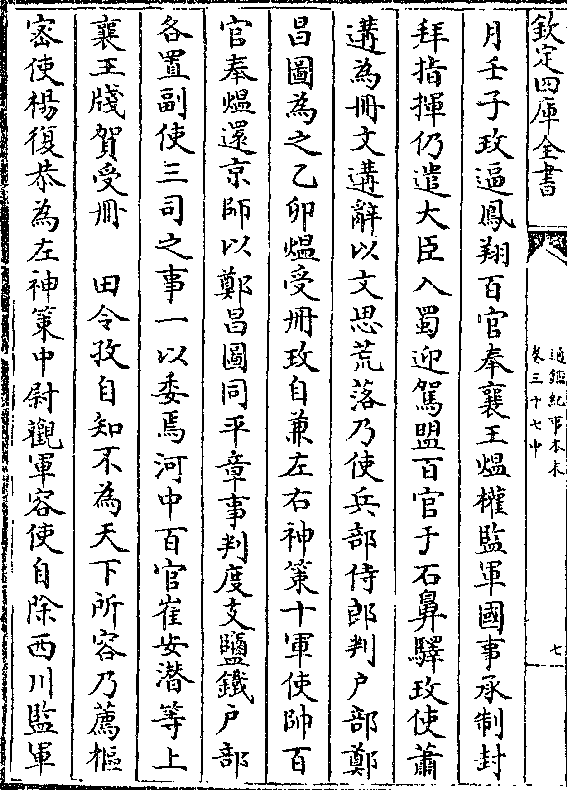 欽定四庫全書
通鑑紀事本末
卷三十七中
七
月壬子玫逼鳳翔百官奉襄王熅權監軍國事承制封
拜指揮仍遣大臣入蜀迎駕盟百官于石鼻驛玫使蕭
遘為冊文遘辭以文思荒落乃使兵部侍郎判户部鄭
昌圖為之乙卯熅受冊玫自兼左右神策十軍使帥百
官奉熅還京師以鄭昌圖同平章事判度支鹽鐵户部
各置副使三司之事一以委焉河中百官崔安潛等上
襄王牋賀受冊　田令孜自知不為天下所容乃薦樞
密使楊復恭為左神策中尉觀軍容使自除西川監軍